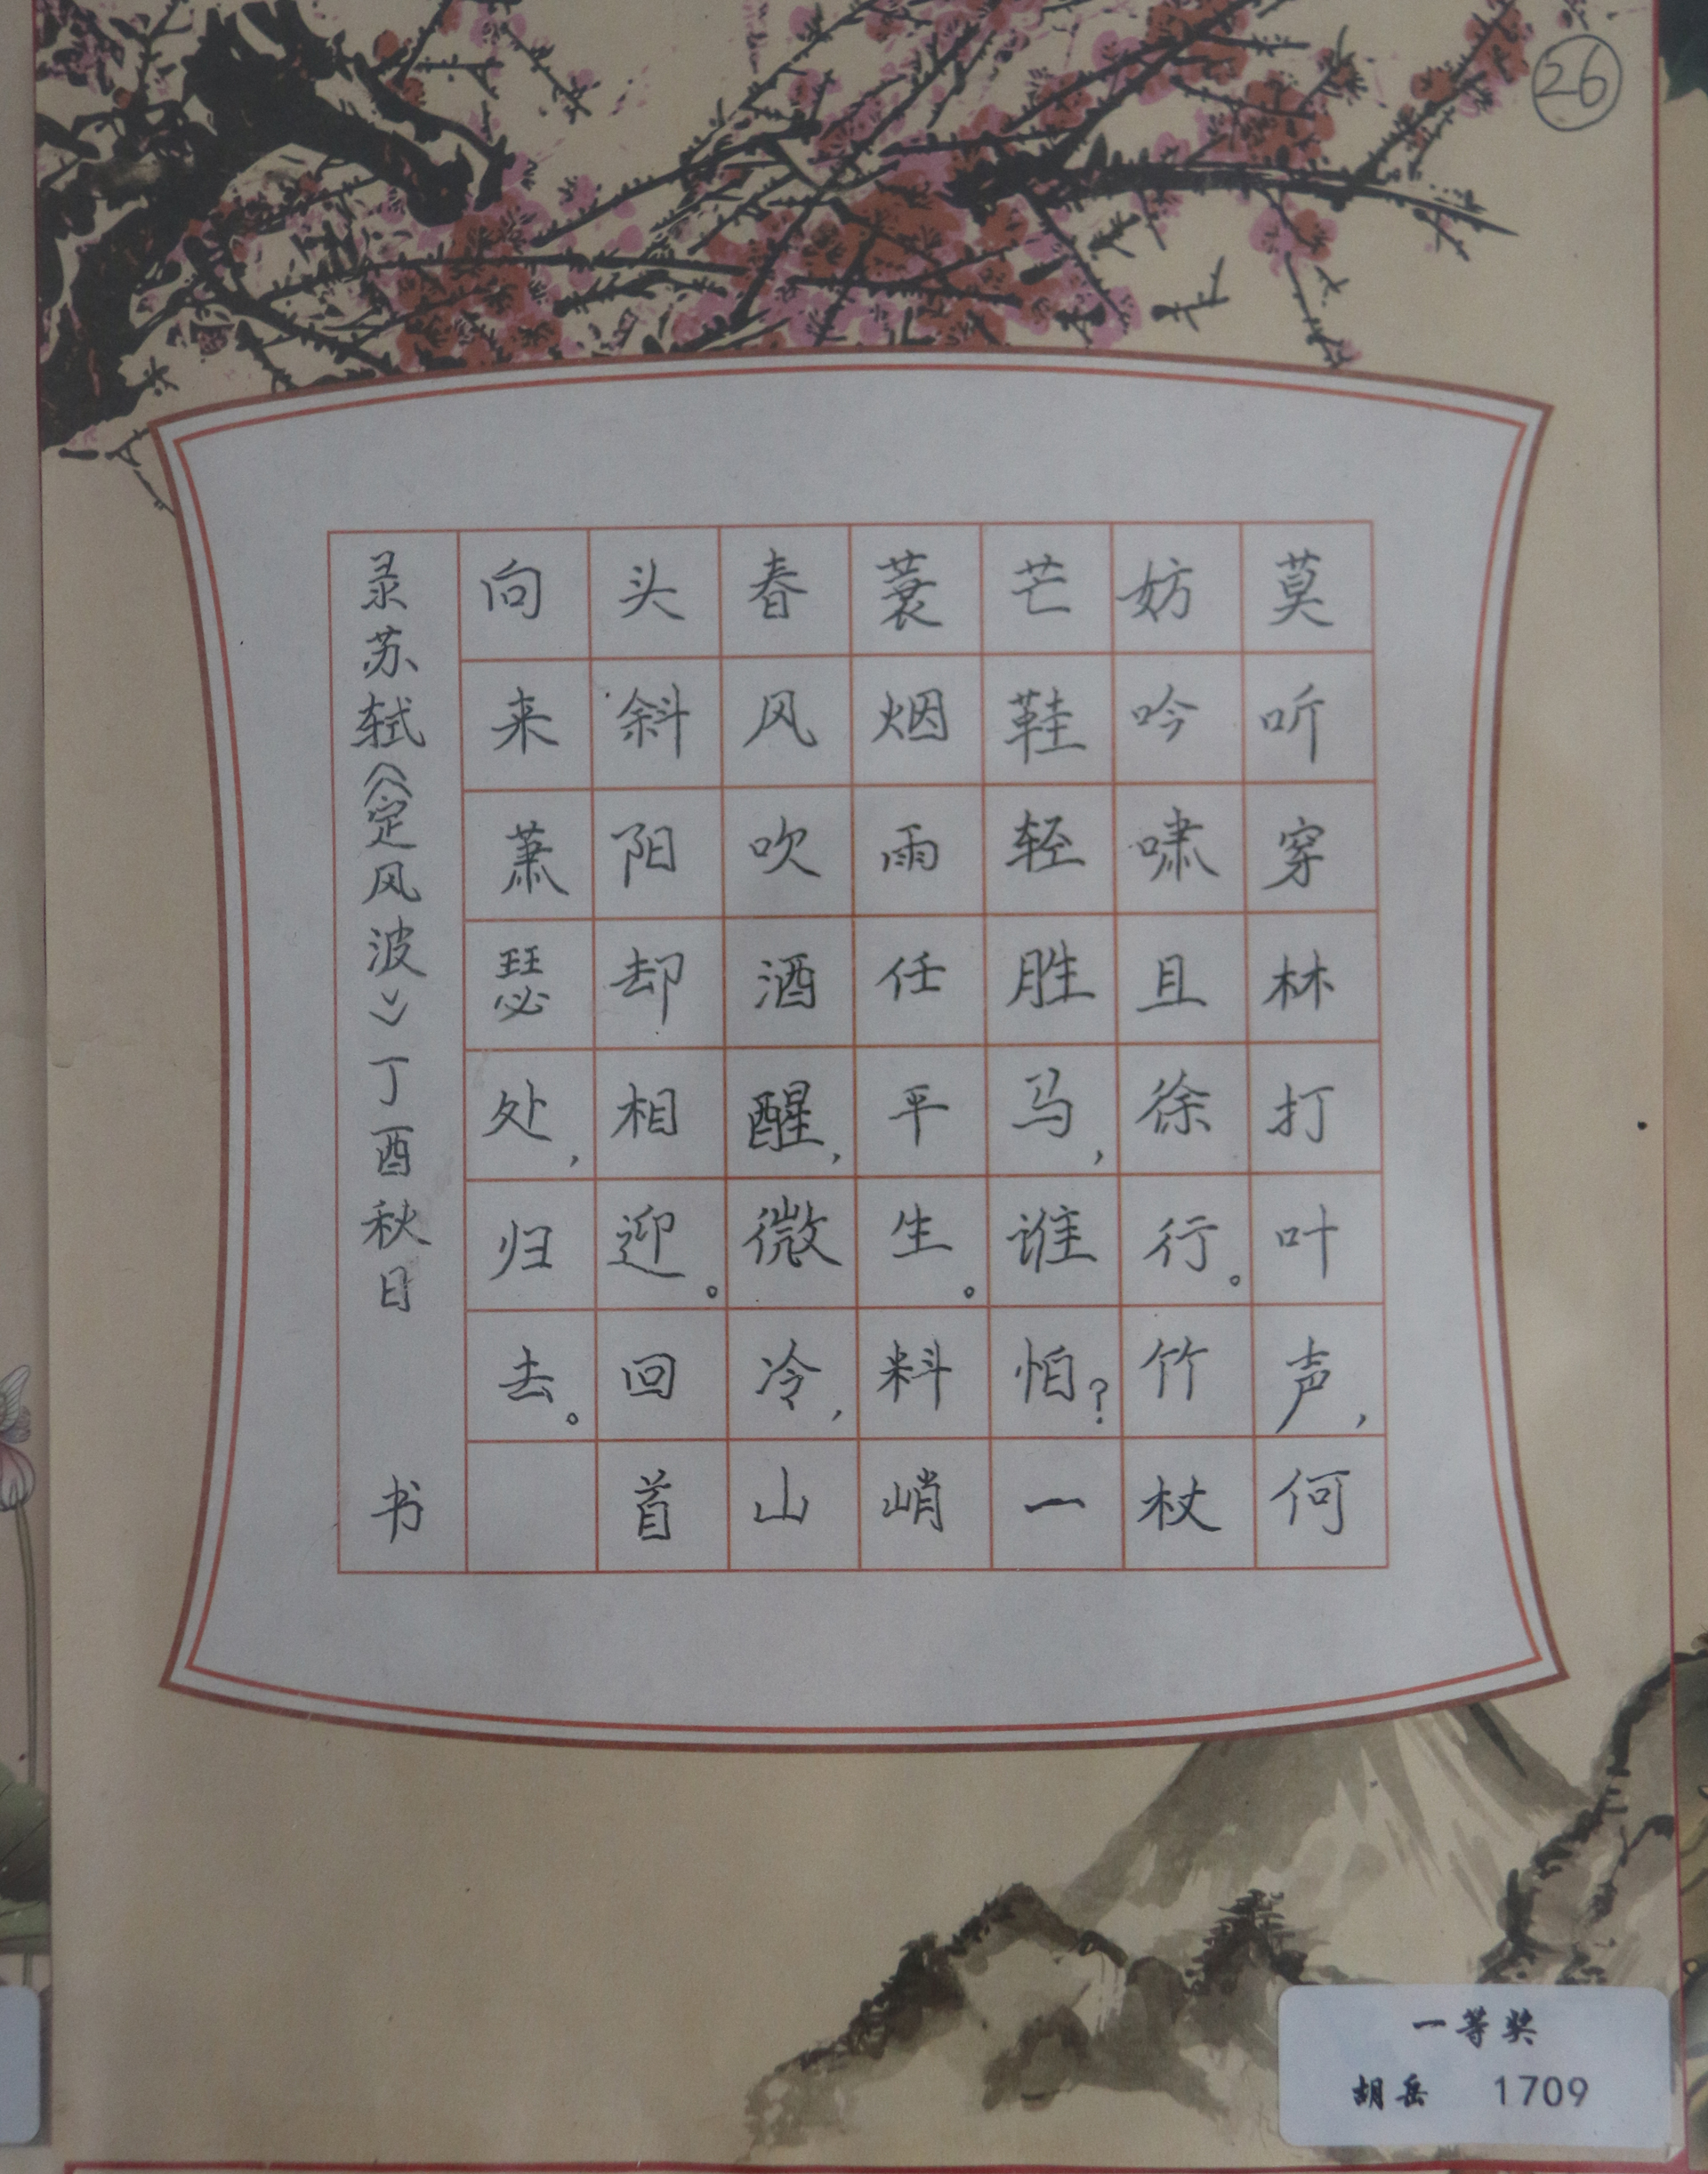 26
莫听穿林打叶声，何
妨吟啸且徐行。竹杖
芒鞋轻胜马，谁怕？一
蓑烟雨任平生。料峭
春风吹酒醒，微冷，山
头斜阳却相迎。回首
向来萧瑟处，归去。
录苏轼《定风波》丁酉秋日 书
一等奖
胡岳 1709